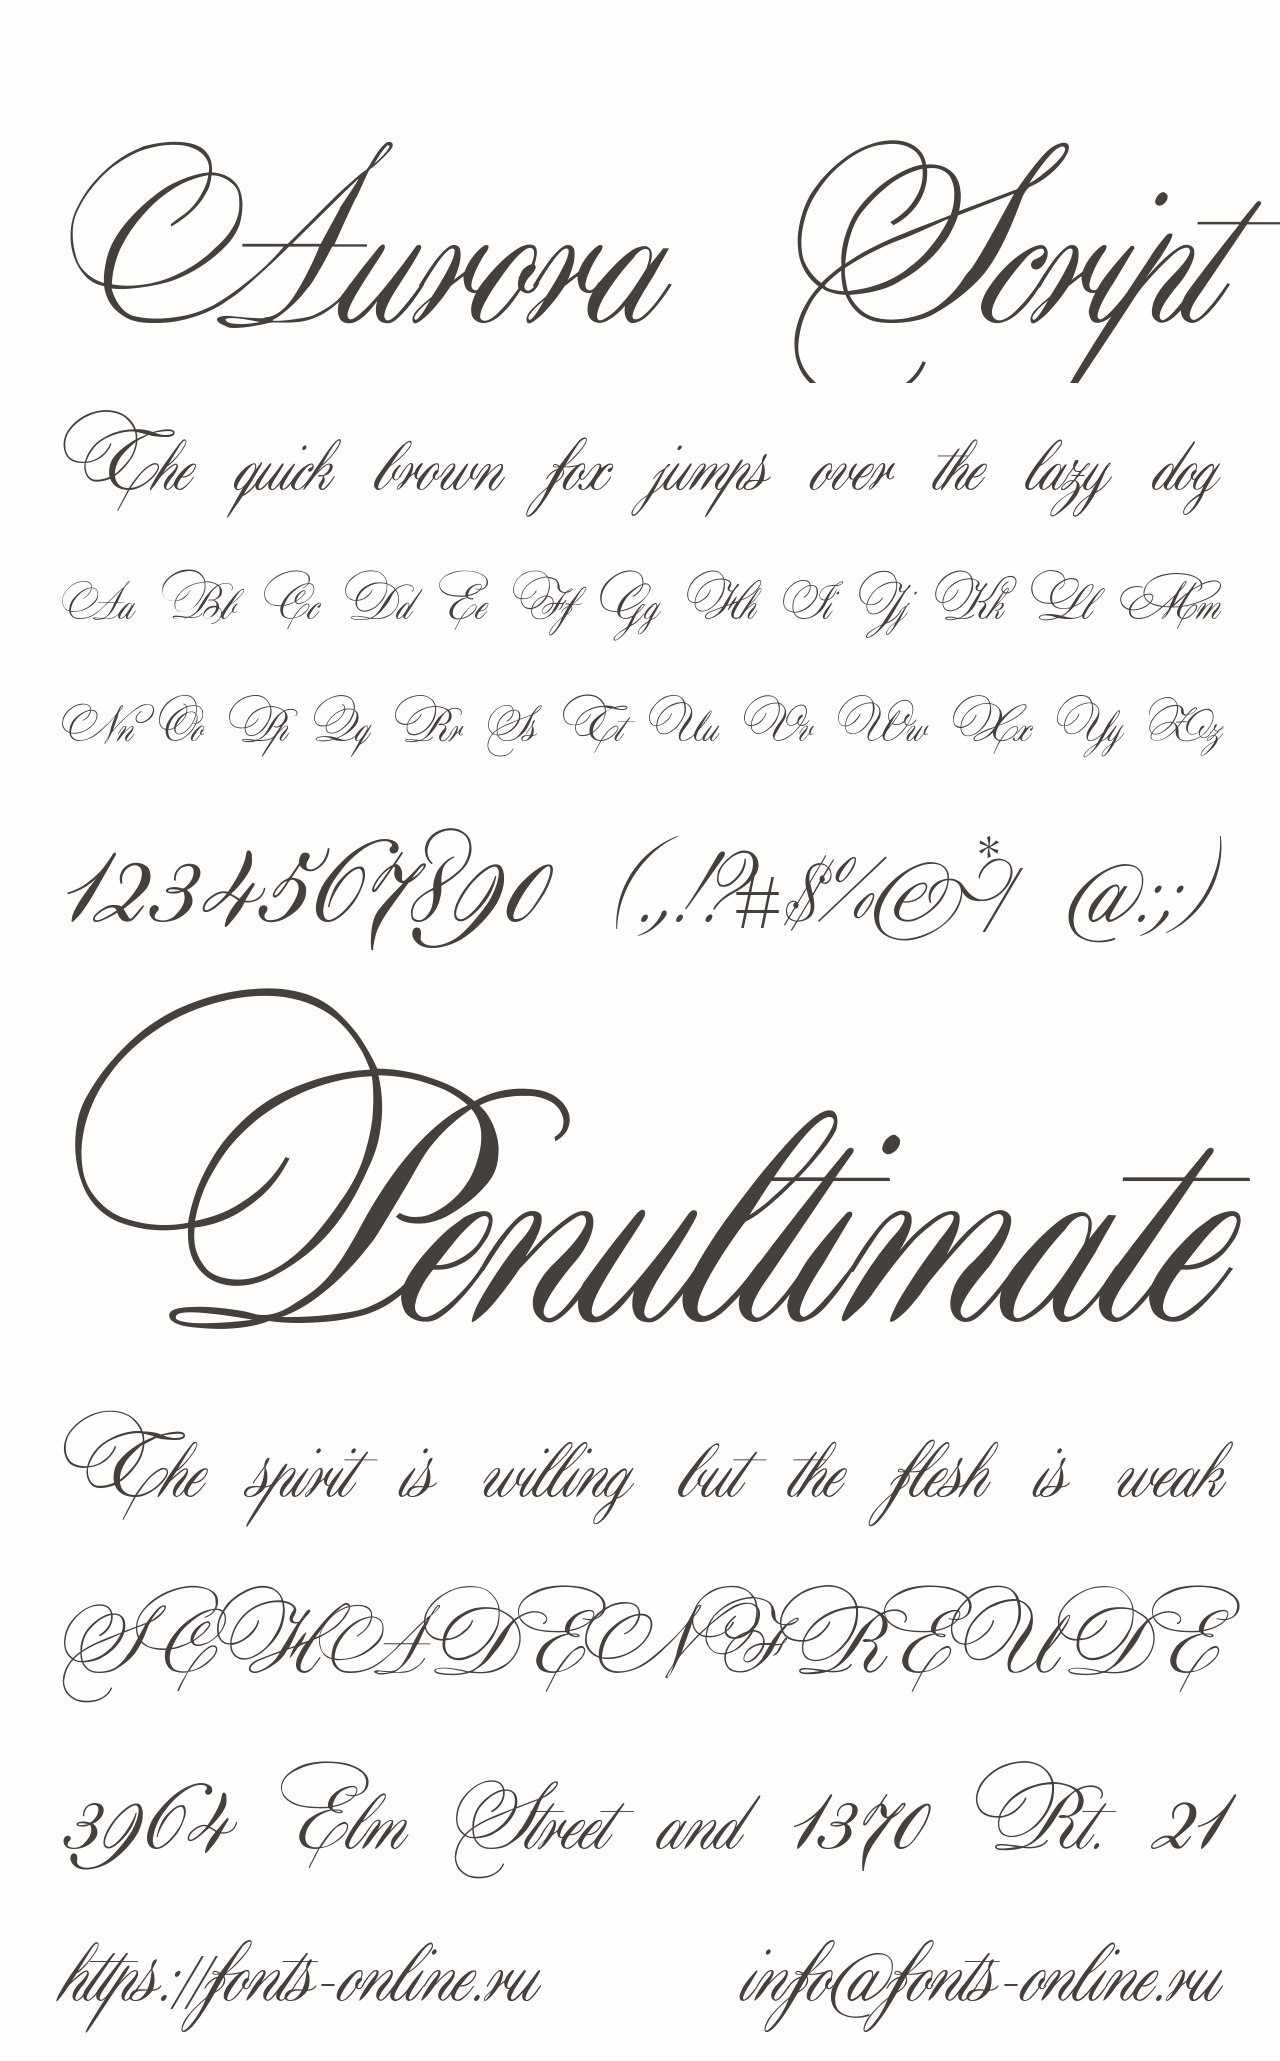 Aurora Script
The quick brown fox jumps over the lazy dog
Aa Bb Cc Dd Ee Ff Gg Hh Ii Jj Kk Ll Mm
Nn Oo Pp Qq Rr Ss Tt Uu Vv Ww Xx Yy Zz
1234567890 (.,!?#$%&*/ @:;)
Penultimate
The spirit is willing but the flesh is weak
SCHADENFREUDE
3964 Elm Street and 1370 Rt. 21
https://fonts-online.ru info@fonts-online.ru